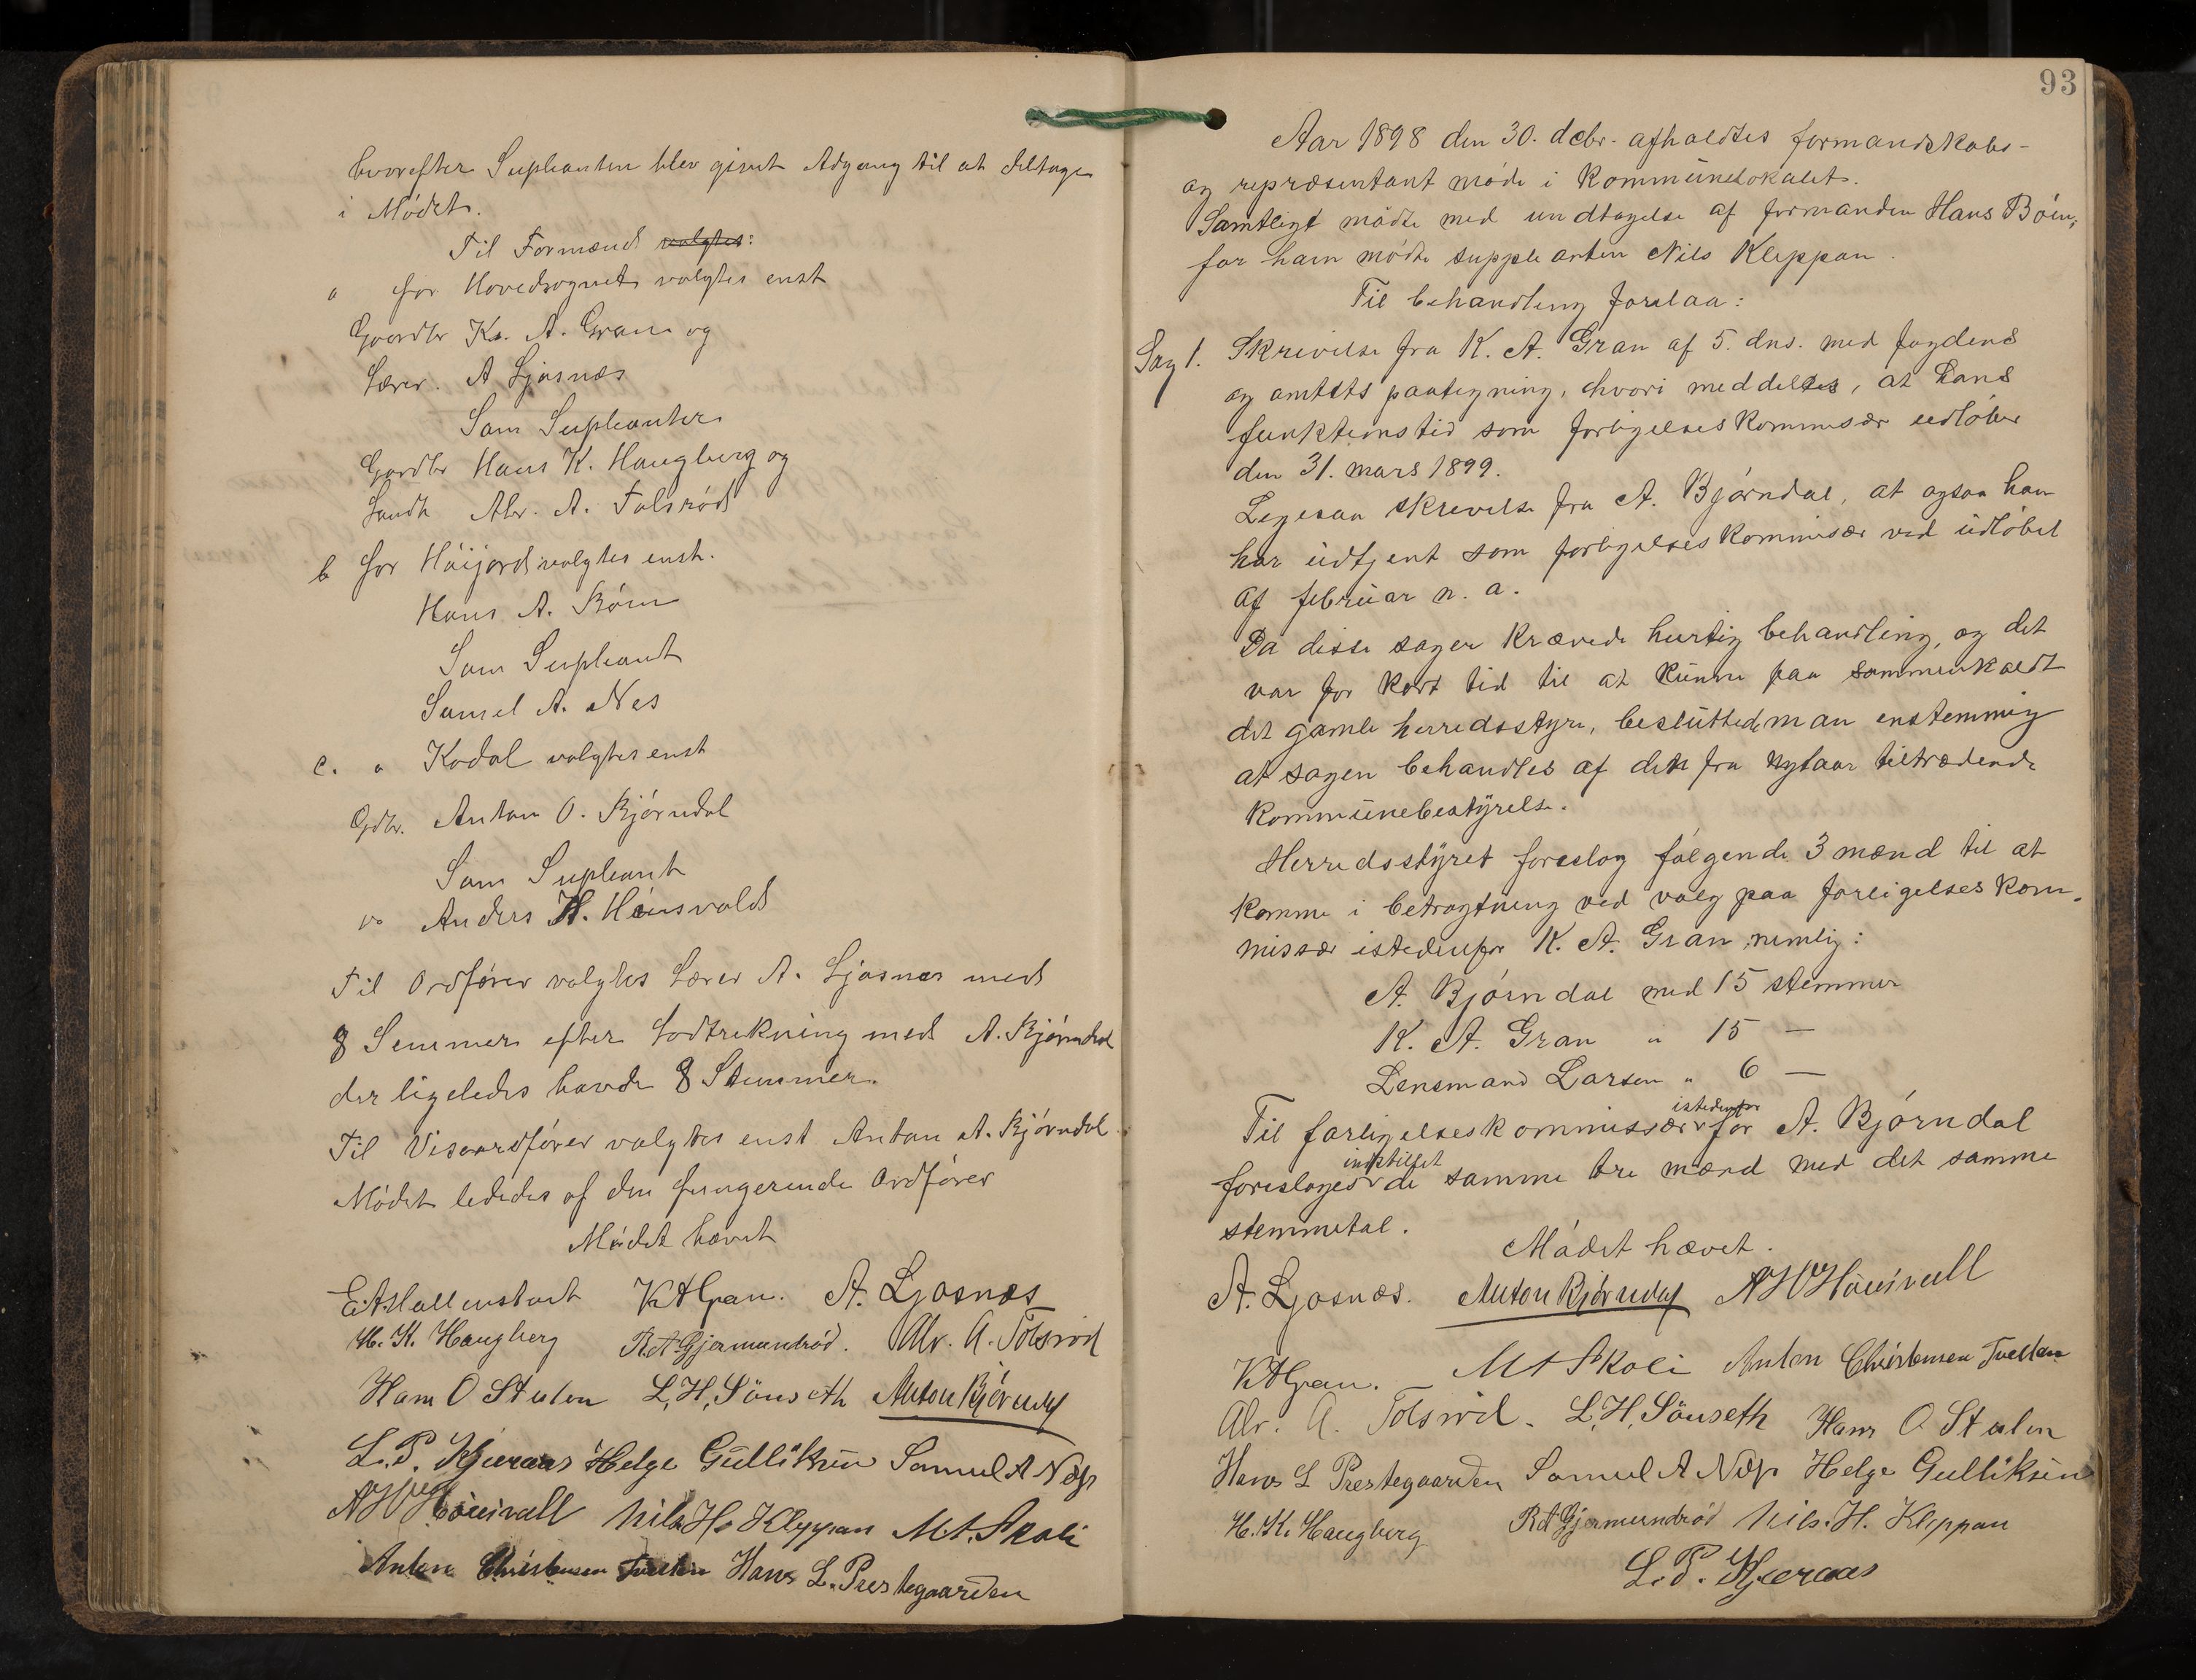 hvorefter Supleanten blev givet Adgang til at deltage
i Mødet.
Til Formænd valgtes:
a for Hovedsognet valgtes enst
Gaardbr K. A. Gran og
Lærer. A Ljosnæs
Som Supleanter
Gardbr Hans K. Haugberg og
Landh Alv. A. Tolsrød
b for Høijord valgtes enst.
Hans A. Bøen
Som Supleant
Samuel A. Nes
c. " Kodal valgtes enst
Gdbr. Anton O. Bjørndal
Som Supleant
" Anders H. Hóusvald
Til Ordfører valgtes Lærer A. Ljosnæs med
8 Semmer efter Lodtrekning med A. Bjørndal
der ligeledes havde 8 Stemmer.
Til Viseordfører valgtes enst Anton A. Bjørndal.
Mødet lededes af den fungerende Ordfører
Mødet hævet
K A Gran. A. Ljosnæs
H. K. Haugberg R A Gjermundrød. Alv. A. Tolsrød
Hans O Stulen L. H. Sönseth Anton Bjørndal
L. P. Kjeraas Helge Gulliksen Samuel A Næss
A H Hóusvall Nils H. Kleppan M A. Skoli
Anton Christensen Tveiten Hans L. Prestegaarden
93
Aar 1898 den 30. debr. afholdtes formandskabs-
og repræsentant møde i kommunelokalet.
Samtligt mødte med undtagelse af formanden Hans Bøen,
for ham mødte suppleanten Nils Kleppan.
Til behandling forelaa:
Sag 1. Skrivelse fra K. A. Gran af 5. dns. med fogdens
og amtets paategning, hvori meddeltes, at hans
funktionstid som forligelseskommisær udløber
den 31. mars 1899.
Legesaa skrivelse fra A. Bjørndal, at ogsaa han
har udtjent som forligelseskommisær ved udløbet
af februar n. a.
Da disse sager krævede hurtig behandling, og det
var for kort tid til at kunne faa sammenkaldt
det gamle herredsstyre, besluttede man enstemmig
at sagen behandles af den fra nytaar tiltrædende
kommunebestyrelse.
Herredsstyret foreslog følgende 3 mænd til at
komme i betragtning ved valg paa forligelseskom-
missær istedenfor K. A. Gran, nemlig:
A. Bjørndal med 15 stemmer
K. A. Gran " 15 —
Lensmand Larsen " 6 —
istedenfor
Til forligelseskommissær for A. Bjørndal
indstillet
foresloges de samme tre mænd med det samme
stemmetal.
Mødet hævet.
A. Ljosnæs. Anton Bjørndal A H Hóusvall
K A Gran. M A Skoli Anton Christensen Tveiten
Alv. A. Tolsrød. L. H. Sönseth Hans O Stulen
Hans L Prestegaarden Samuel A Næss Helge Gulliksen
H. K. Haugberg R A Gjermundrød Nils. H. Kleppan
L. P. Kjeraas